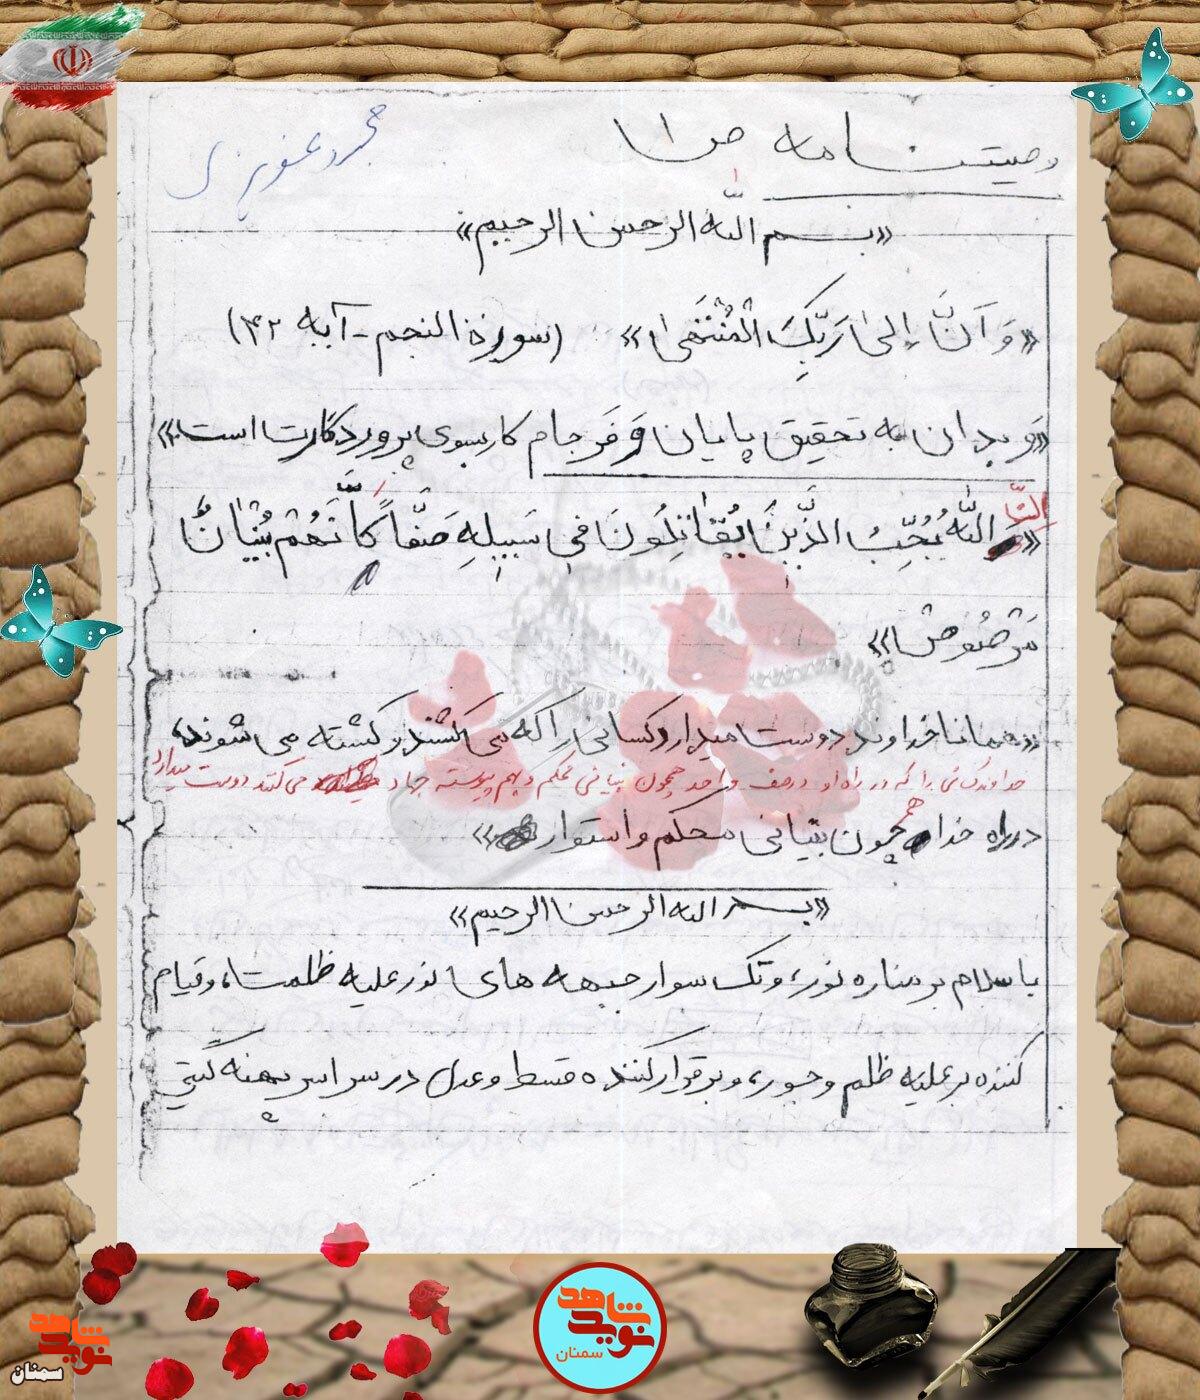 وصیتنامه
«بسم الله الرحمن الرحیم»
«وَ اَنَّ إِلیٰ رَبِّکَ الْمُنْتَهیٰ» (سورۀ النجم - آیه ۴۲)
«وَ بدان به تحقیق پایان وَ فَرجام کار بسوی پروردگارت است.»
«اِنَّ اللّهَ یُحِّبُ الذَّینَ یُقٰاتِلُونَ فی سَبیلِهِ صَفّاً کَاَنَّهُم بُنْیانٌ
مَرْصُوص»
«همانا خداوند دوست میدارد کسانی را که می کشند و کشته می شوند،
خداوند کسانی را که در راه او در صف واحد همچون بنیانی محکم و بهم پیوسته جهاد می کنند دوست میدارد
در راه خدا همچون بنیانی محکم و استوار»
«بسم الله الرحمن الرحیم»
با سلام بر مناره نور، و تک سوار جبهه های نور علیه ظلمت، و قیام
کننده بر علیه ظلم و جور، و برقرار کننده قسط و عدل در سراسر پهنه گیتی
نوید شاهد
سمنان
نوید شاهد
سمنان